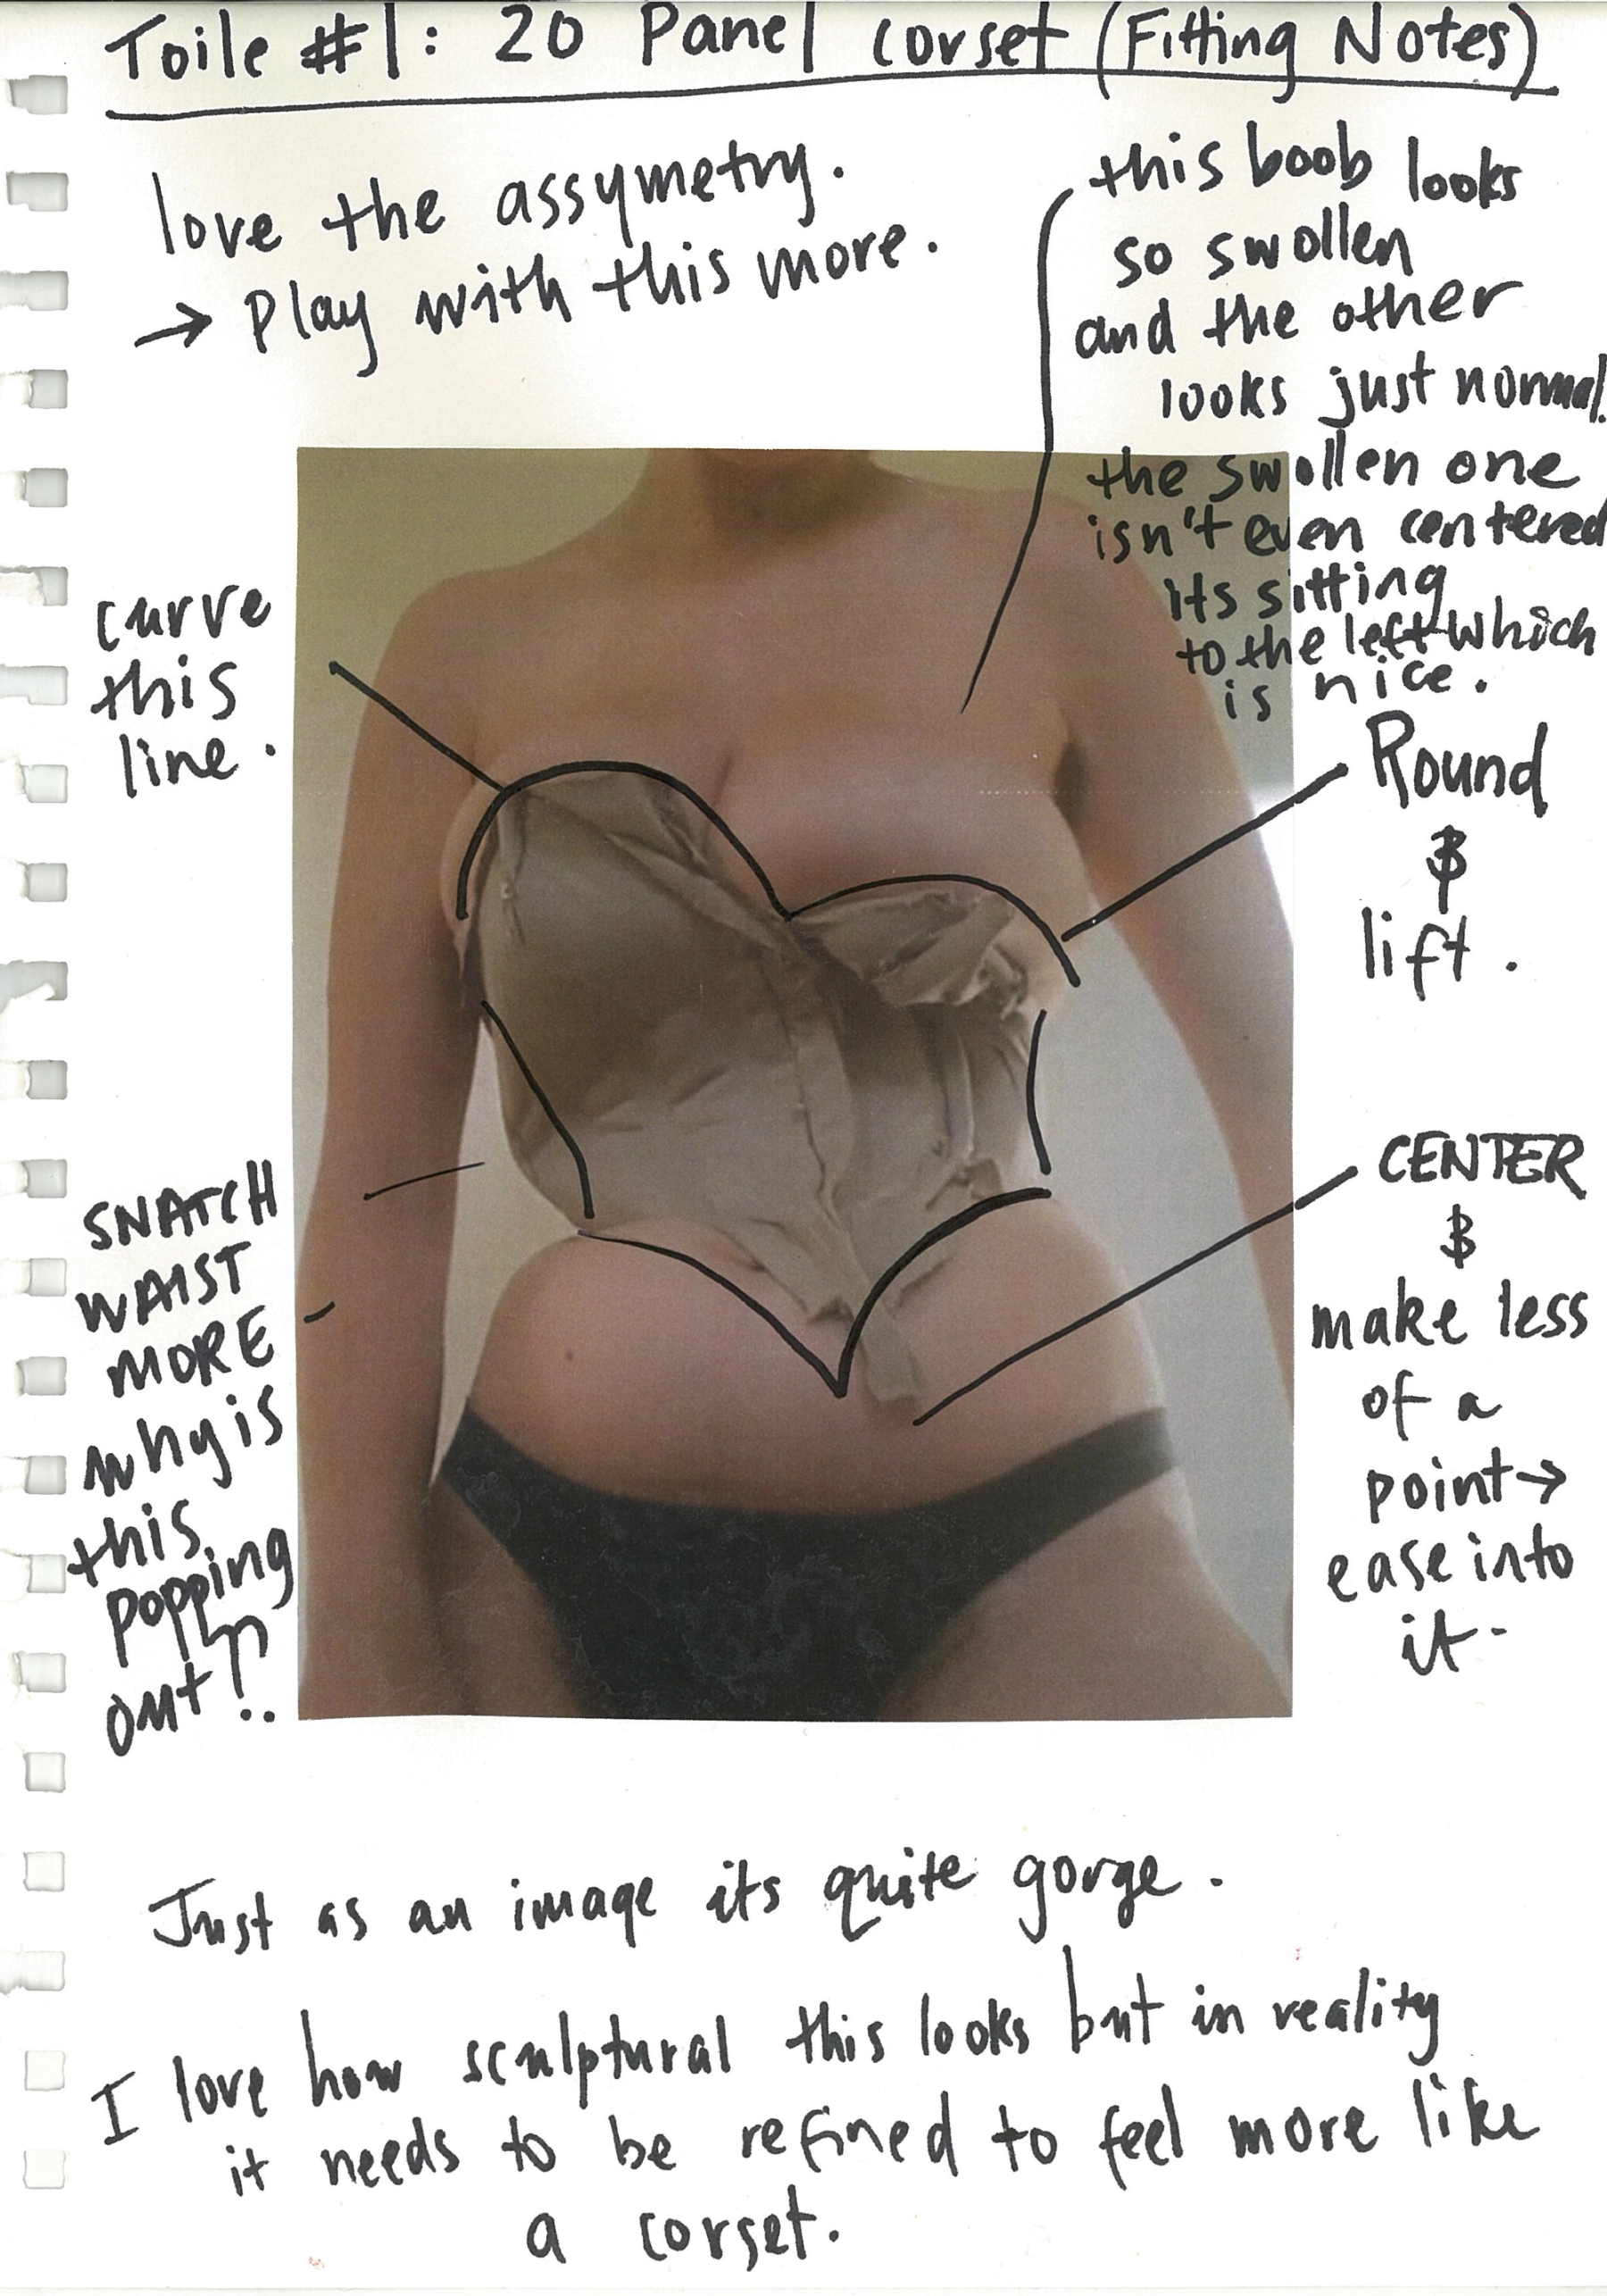 Toile #1: 20 Panel corset (Fitting Notes)
love the assymetry.
→ Play with this more.
this boob looks
so swollen
and the other
looks just normal.
the swollen one
isn't even centered
its sitting
to the left which
is nice.
curve
this
line.
Round
&
lift.
SNATCH
WAIST
MORE
why is
this
popping
out!?
CENTER
&
make less
of a
point →
ease into
it.
Just as an image its quite gorge.
I love how sculptural this looks but in reality
it needs to be refined to feel more like
a corset.